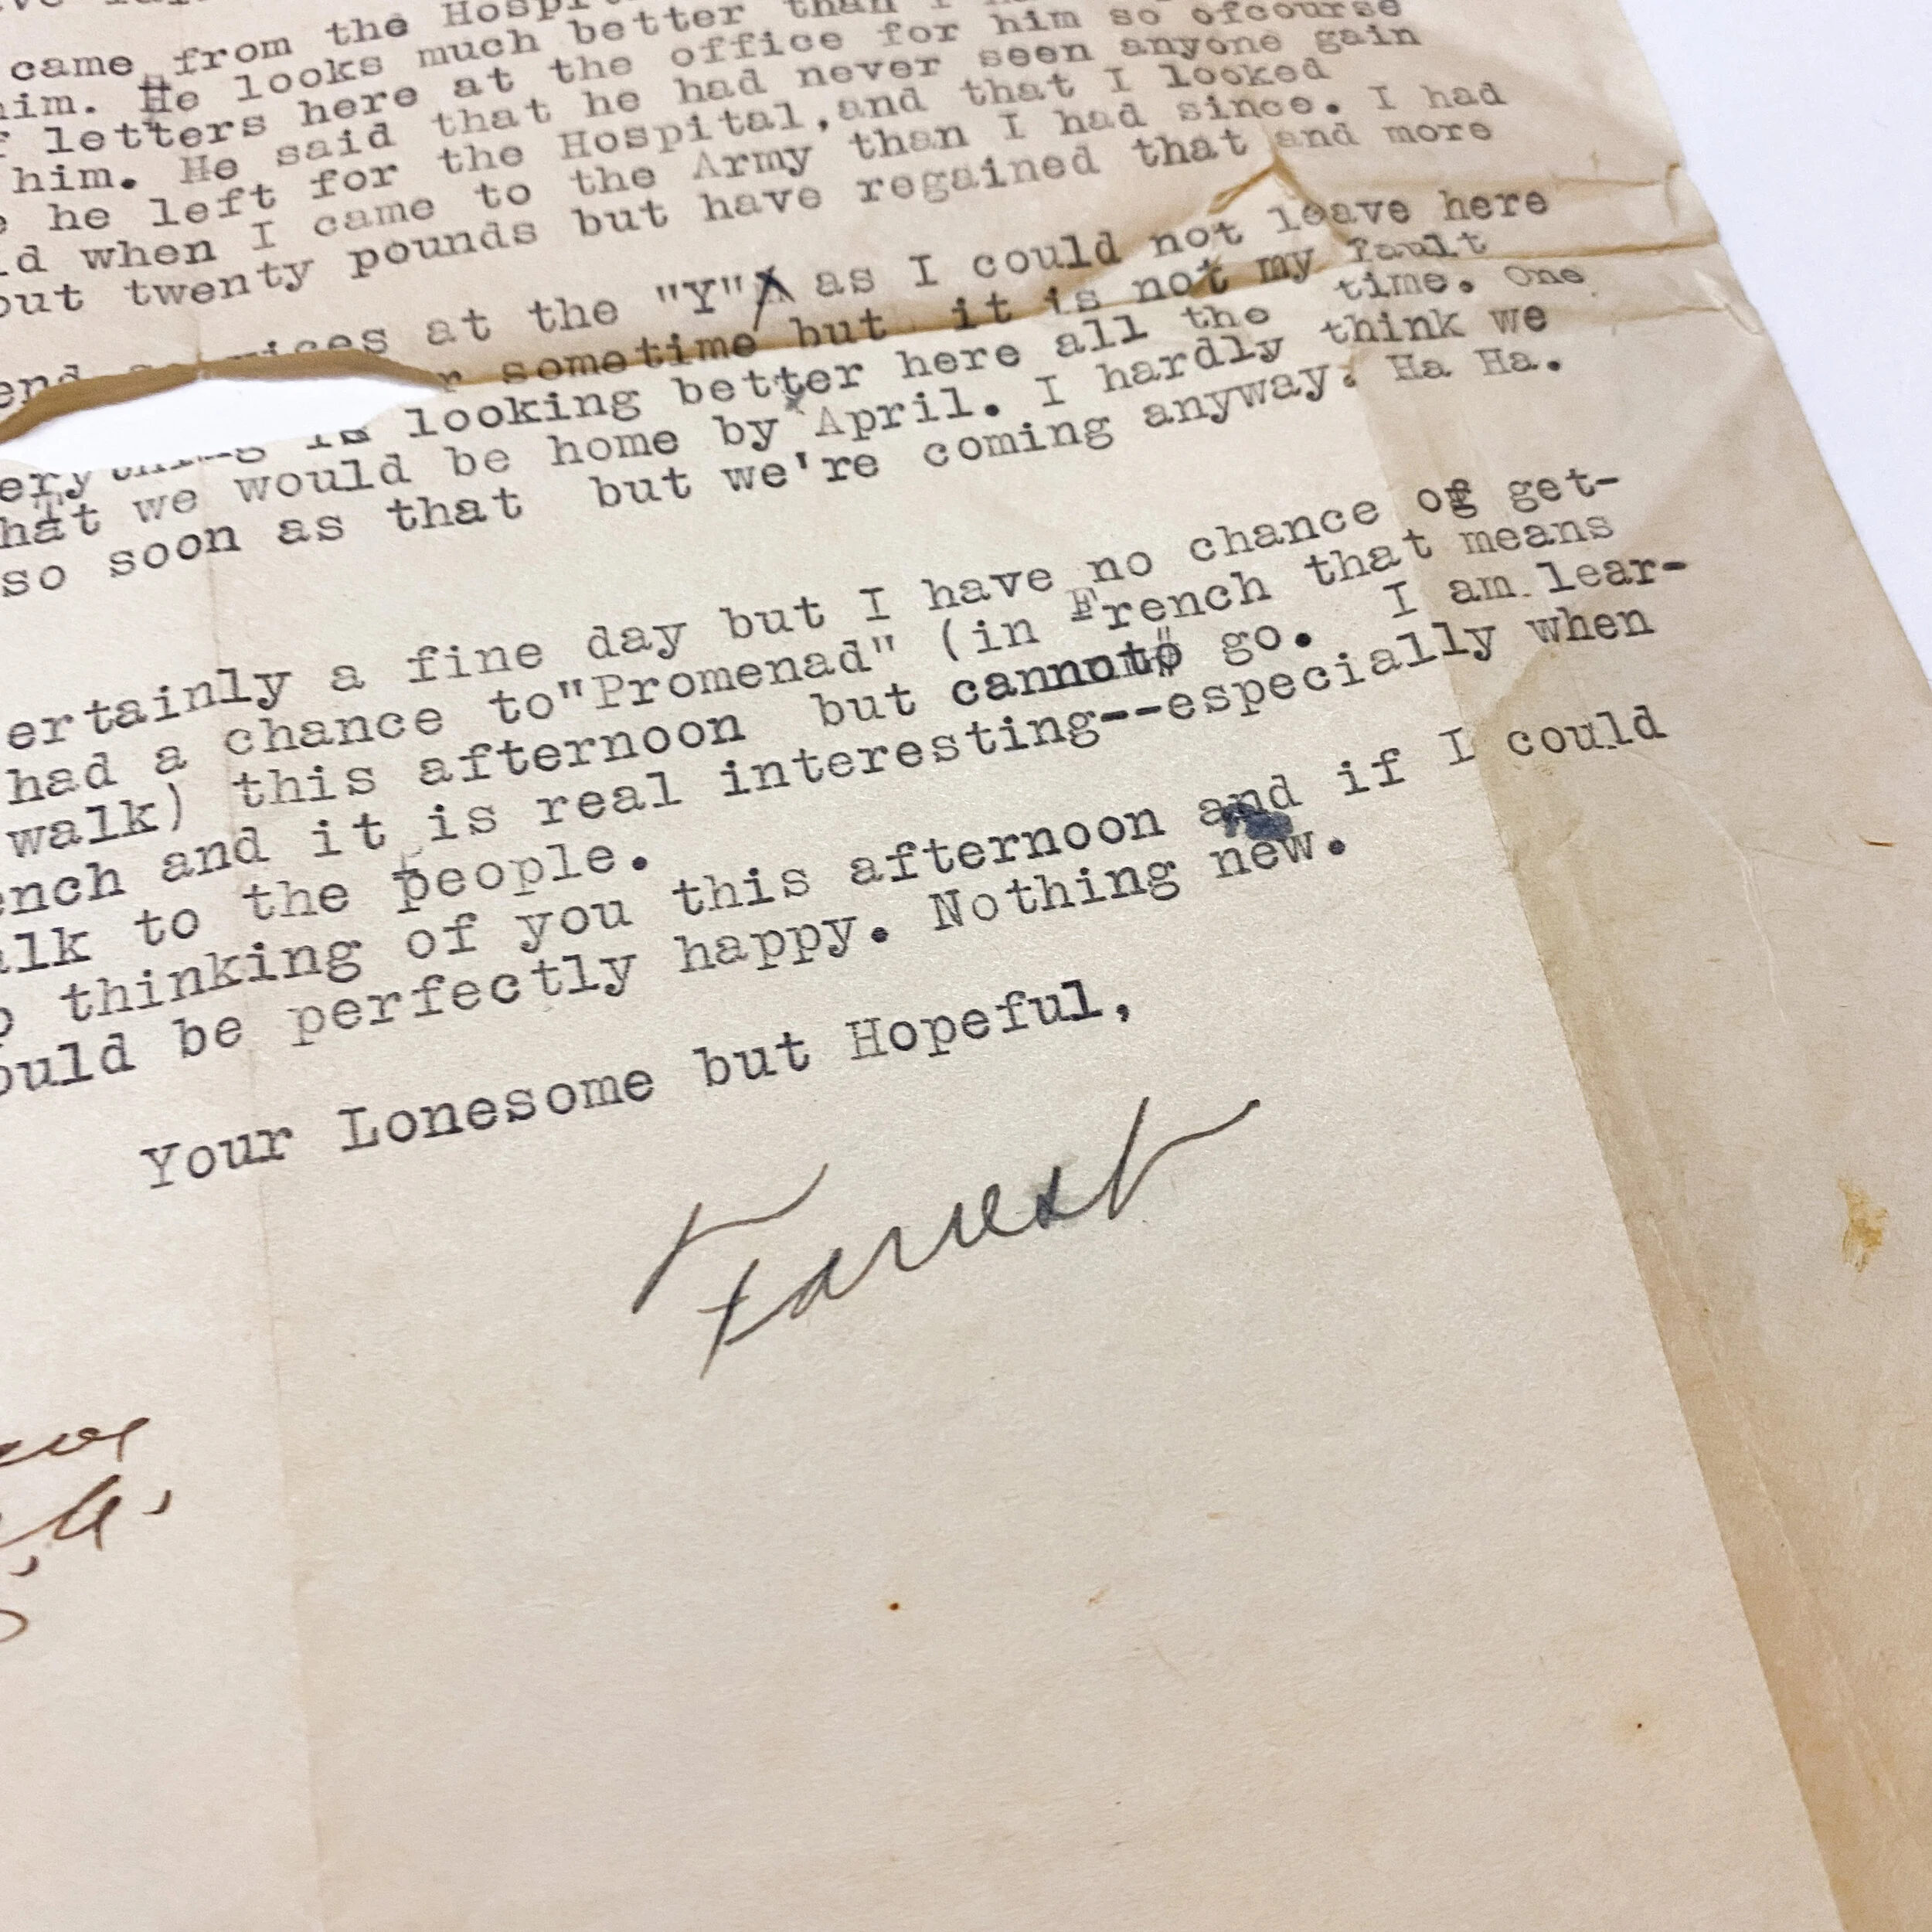 came from the Hospi
him. He looks much better than I
f letters here at the office for him so ofcourse
him. He said that he had never seen anyone gain
he left for the Hospital,and that I looked
when I came to the Army than I had since. I had
out twenty pounds but have regained that and more
at the "Y" as I could not leave here
sometime but it is not my fault
looking better here all the time. One
hat we would be home by April. I hardly think we
so soon as that but we're coming anyway. Ha Ha.
ertainly a fine day but I have no chance of get-
had a chance to"Promenad" (in French that means
walk) this afternoon but cannot go. I am lear-
ench and it is real interesting--especially when
alk to the people.
thinking of you this afternoon and if I could
ould be perfectly happy. Nothing new.
Your Lonesome but Hopeful,
Forrest